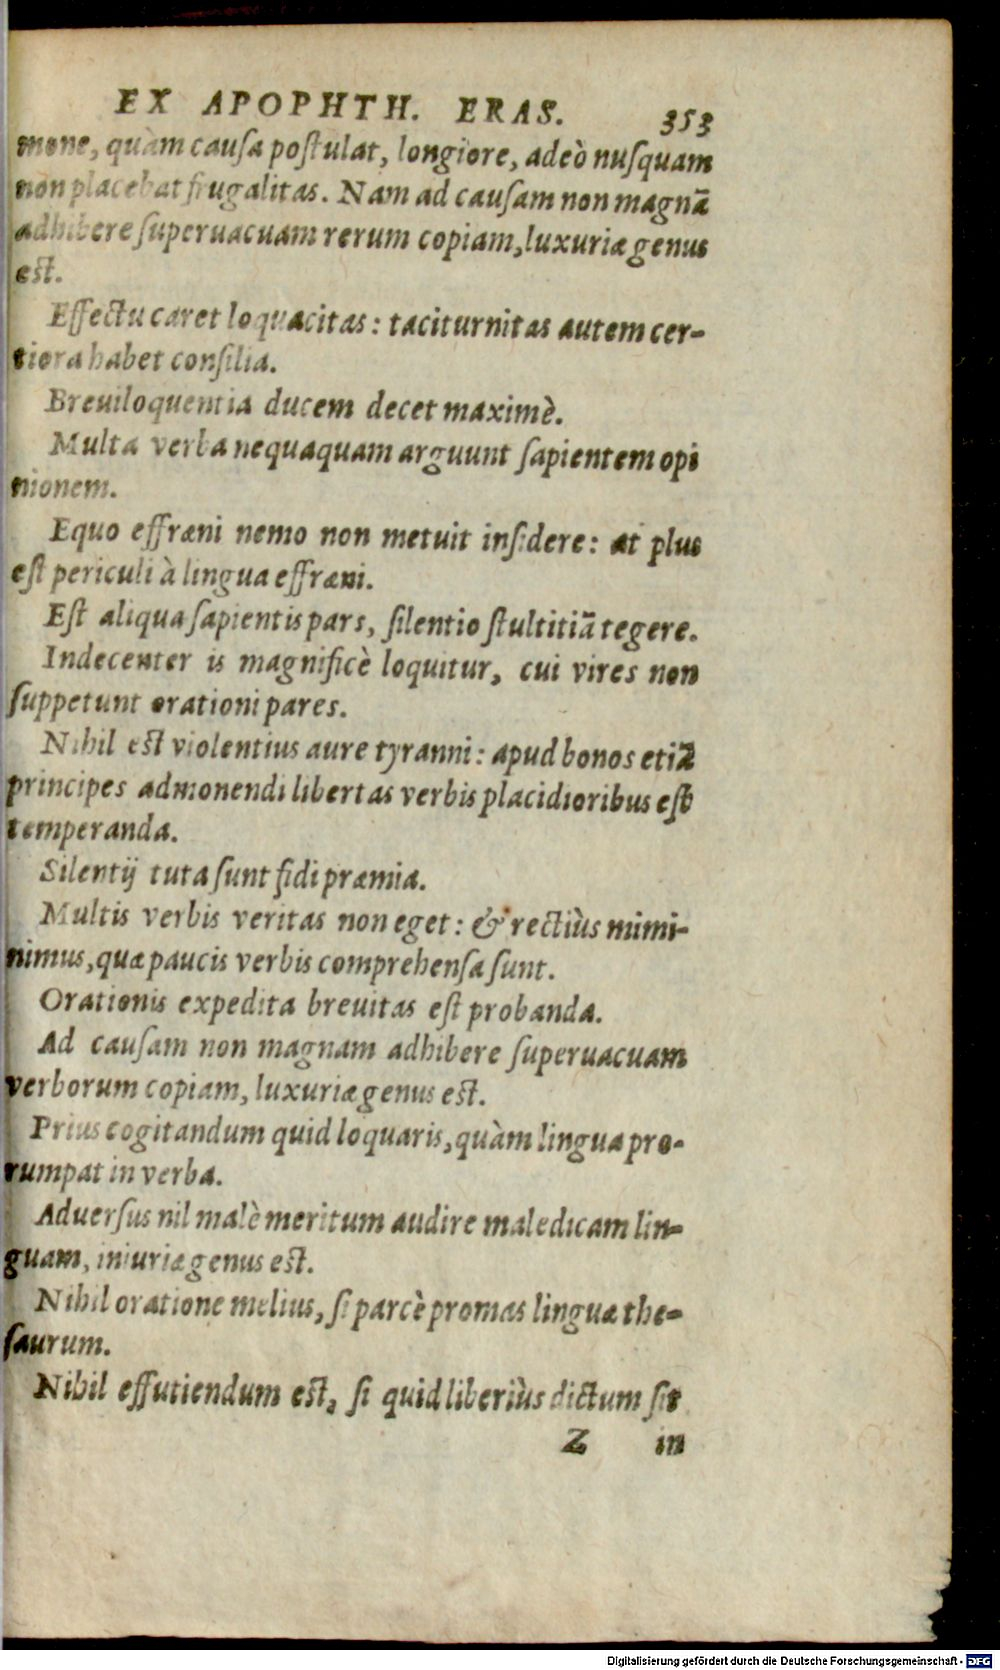 EX APOPHTH. ERAS. 353
mone, quàm cauſa poſtulat, longiore, adeò nuſquam
non placebat frugalitas. Nam ad cauſam non magnã
adhibere ſuperuacuam rerum copiam, luxuriæ genus
eſt.
Effectu caret loquacitas: taciturnitas autem cer-
tiora habet conſilia.
Breuiloquentia ducem decet maximè.
Multa verba nequaquam arguunt ſapientem opi
nionem.
Equo effræni nemo non metuit inſidere: at plus
eſt periculi à lingua effræni.
Eſt aliqua ſapientis pars, ſilentio ſtultitiã tegere.
Indecenter is magnificè loquitur, cui vires non
ſuppetunt orationi pares.
Nihil eſt violentius aure tyranni: apud bonos etiã
principes admonendi libertas verbis placidioribus eſt
temperanda.
Silentij tuta ſunt fidi præmia.
Multis verbis veritas non eget: & rectiùs mimi-
nimus, quæ paucis verbis comprehenſa ſunt.
Orationis expedita breuitas eſt probanda.
Ad cauſam non magnam adhibere ſuperuacuam
verborum copiam, luxuriæ genus eſt.
Prius cogitandum quid loquaris, quàm lingua pro-
rumpat in verba.
Aduerſus nil malè meritum audire maledicam lin-
guam, iniuriæ genus eſt.
Nihil oratione melius, ſi parcè promas linguæ the-
ſaurum.
Nihil effutiendum eſt, ſi quid liberiùs dictum ſit
Z in
Digitalisierung gefördert durch die Deutsche Forschungsgemeinschaft - DFG